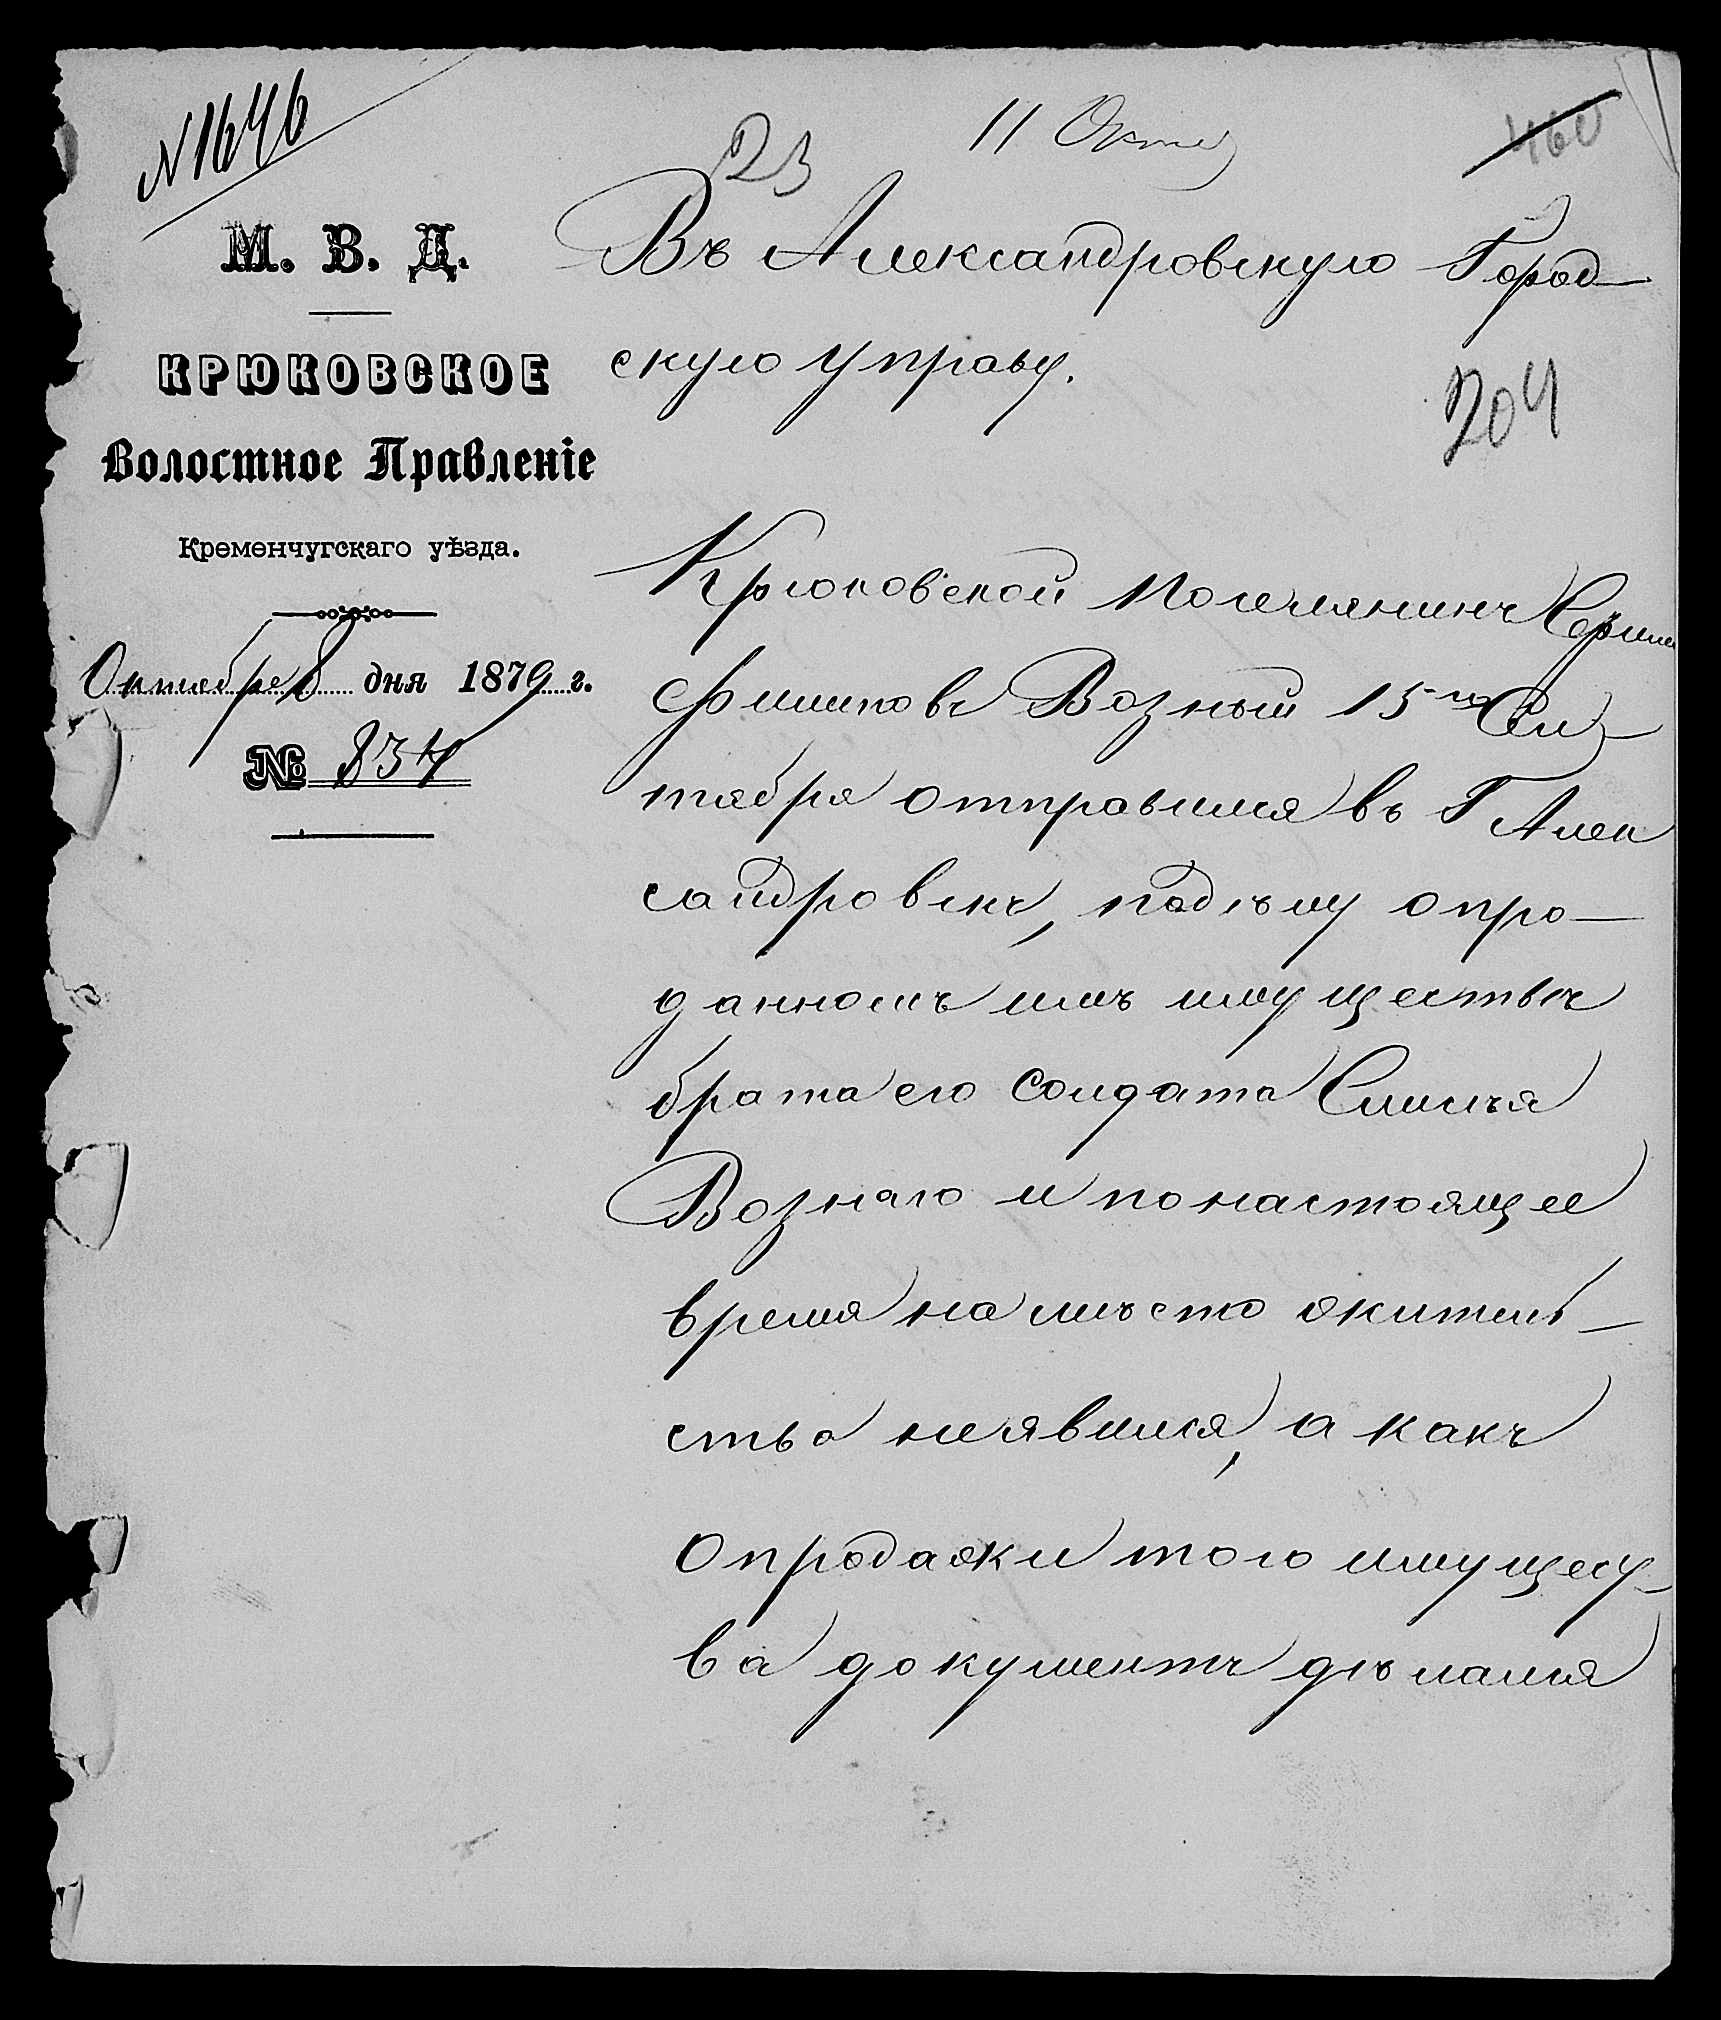 N 1646
23
11 Окт
460
М. В. Д.
КРЮКОВСКОЕ
Волостное Правленіе
Кременчугскаго уѣзда.
Октября 8 дня 1879 г.
№ 834
Въ Александровскую Город–
скую управу.
204
Крюковской поселянинъ
Возный 15го Сен–
тября отправился въ Г Алек
сандровскъ, по дѣлу опро–
данномъ имъ имуществѣ
брата его солдата
Вознаго и понастоящее
время на мѣсто житель–
ства неявился, а какъ
опродажи того имущест–
ва документъ дѣлался